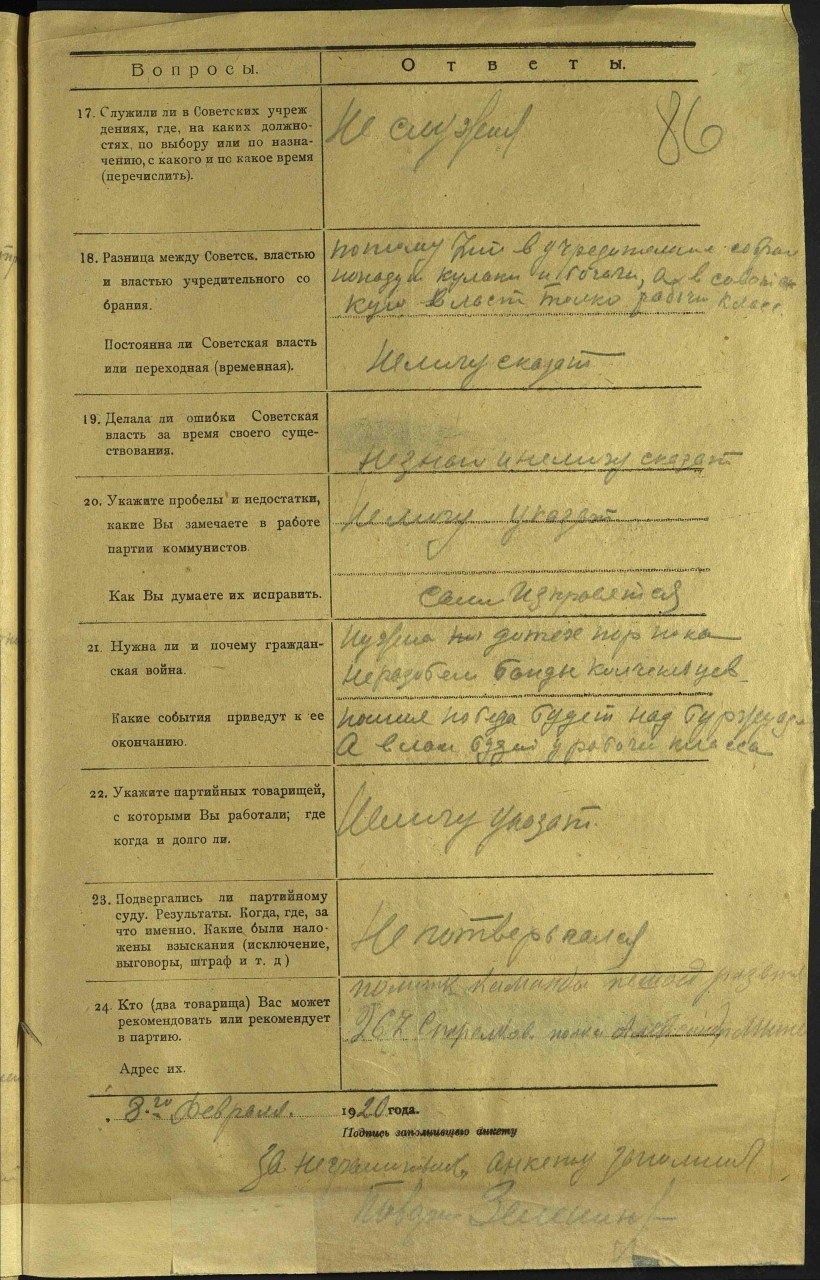 Вопросы.
Ответы.
17. Служили ли в Советских учреж
дениях, где, на каких должно-
стях, по выбору или по назна-
чению, с какого и по какое время
(перечислить).
Не служил
86
18. Разница между Советск. властью
и властью учредительного со
брания.
потому што в учредителние собран
попадут кулаки и богачи, А в советск
кую власт толко рабочи класс.
Постоянна ли Советская власть
или переходная (временная).
Немогу сказат
19. Делала ли ошибки Советская
власть за время своего суще-
ствования.
Незнаю и немогу сказат
20. Укажите пробелы и недостатки,
какие Вы замечаете в работе
партии коммунистов.
Немогу указат
Как Вы думаете их исправить.
сами Изправется
21. Нужна ли и почему граждан-
ская война.
Нужна дотех пор пока
Неразобем банды колчаковцев
Какие события приведут к ее
окончанию.
победа будет над буржуаз
А власт будет у рабочи класса
22. Укажите партийных товарищей,
с которыми Вы работали; где
когда и долго ли.
Немогу указат.
23. Подвергались ли партийному
суду. Результаты. Когда, где, за
что именно. Какие были нало-
жены взыскания (исключение,
выговоры, штраф и т. д)
Не потвергался
24. Кто (два товарища) Вас может
рекомендовать или рекомендует
в партию.
политк команды пешой
267 Стрелков. полка
Адрес их.
8-го Февраля. 1920 года.
Подпись заполнившего анкету
За неграмотнов анкету заполнил